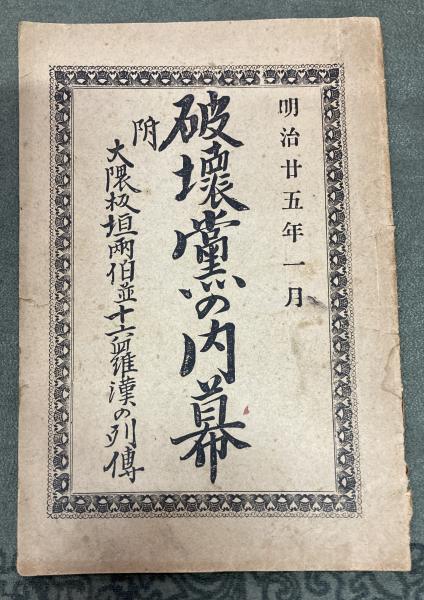 明治廿五年一月
破壞黨の内幕
附
大隈板垣兩伯並十六羅漢の列傳